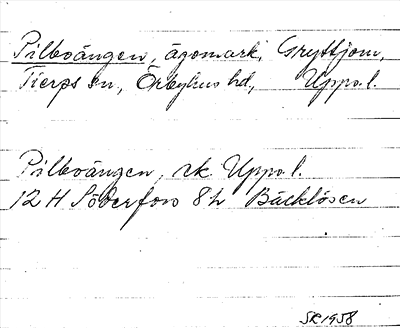 Pilboängen, ägomark, Gryttjom,
Tierps sn, Örbyhus hd, Uppo.l.
Pilboängen, rk. Uppo.l.
12 H Söderfors 8h Bäcklösen
SK 1958